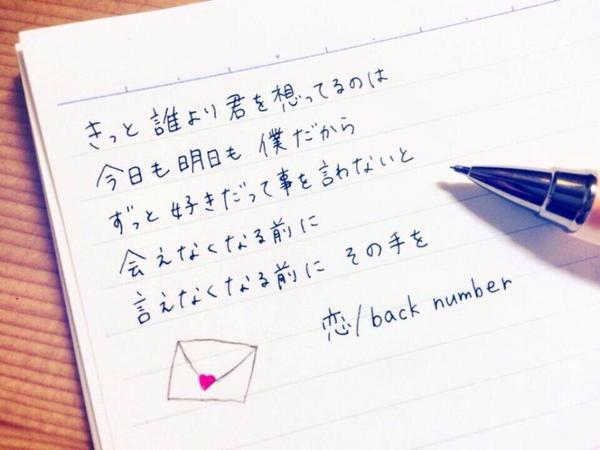 きっと 誰より 君を想ってるのは
今日も明日も 僕だから
ずっと 好きだって事を言わないと
会えなくなる前に
言えなくなる前に その手を
恋/back number